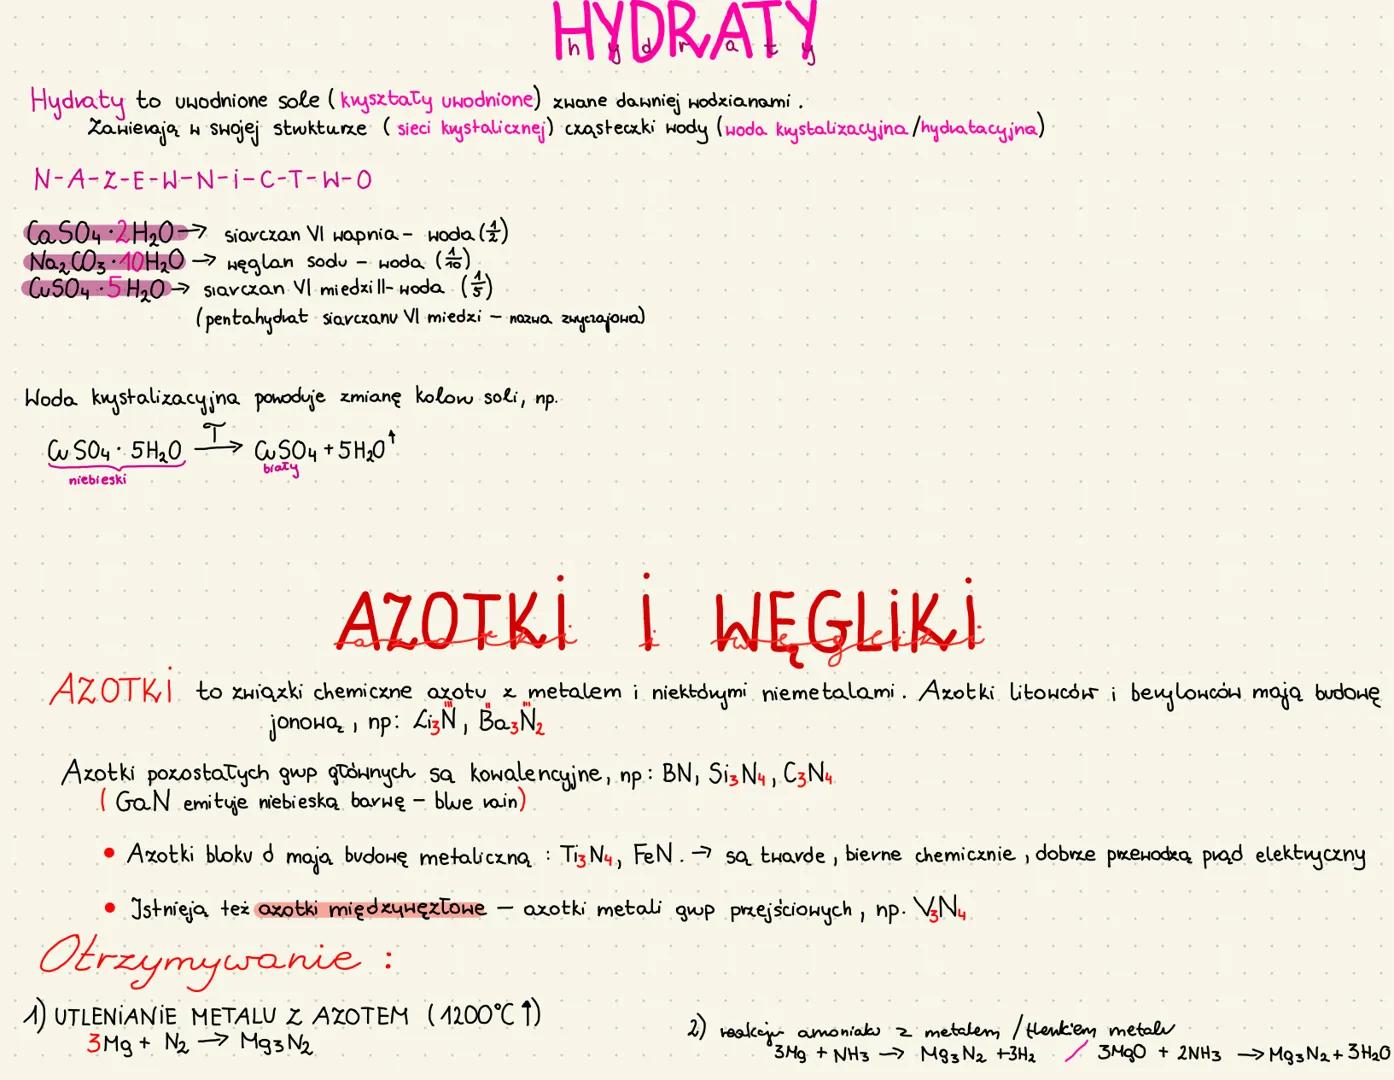 HYDRATY
hydraty
Hydraty to uwodnione sole (kryształy uwodnione) zwane dawniej wodzianami.
Zawierają w swojej strukturze (sieci krystalicznej) cząsteczki wody (woda krystalizacyjna/hydratacyjna)
N-A-Z-E-W-N-i-C-T-W-O
CaSO₄·2H₂O → siarczan VI wapnia - woda (1/2)
Na₂CO₃·10H₂O → węglan sodu - woda (1/10)
CuSO₄·5H₂O → siarczan VI miedzi II - woda (1/5)
(pentahydrat siarczanu VI miedzi - nazwa zwyczajowa)
Woda krystalizacyjna powoduje zmianę koloru soli, np.
T
CuSO₄·5H₂O → CuSO₄ + 5H₂O↑
niebieski biały
AZOTKi i WĘGLiKi
azotki i węgliki
AZOTKi to związki chemiczne azotu z metalem i niektórymi niemetalami. Azotki litowców i berylowców mają budowę
jonową, np: Li₃N, Ba₃N₂
III II III
Azotki pozostałych grup głównych są kowalencyjne, np: BN, Si₃N₄, C₃N₄
(GaN emituje niebieską barwę - blue rain)
• Azotki bloku d mają budowę metaliczną : Ti₃N₄, FeN. → są twarde, bierne chemicznie, dobrze przewodzą prąd elektryczny
• Istnieją też azotki międzywęzłowe - azotki metali grup przejściowych, np. V₃N₄
Otrzymywanie :
1) UTLENiANiE METALU Z AZOTEM (1200°C↑)
3Mg + N₂ → Mg₃N₂
2) reakcja amoniaku z metalem / tlenkiem metalu
3Mg + NH₃ → Mg₃N₂ + 3H₂ / 3MgO + 2NH₃ → Mg₃N₂ + 3H₂O